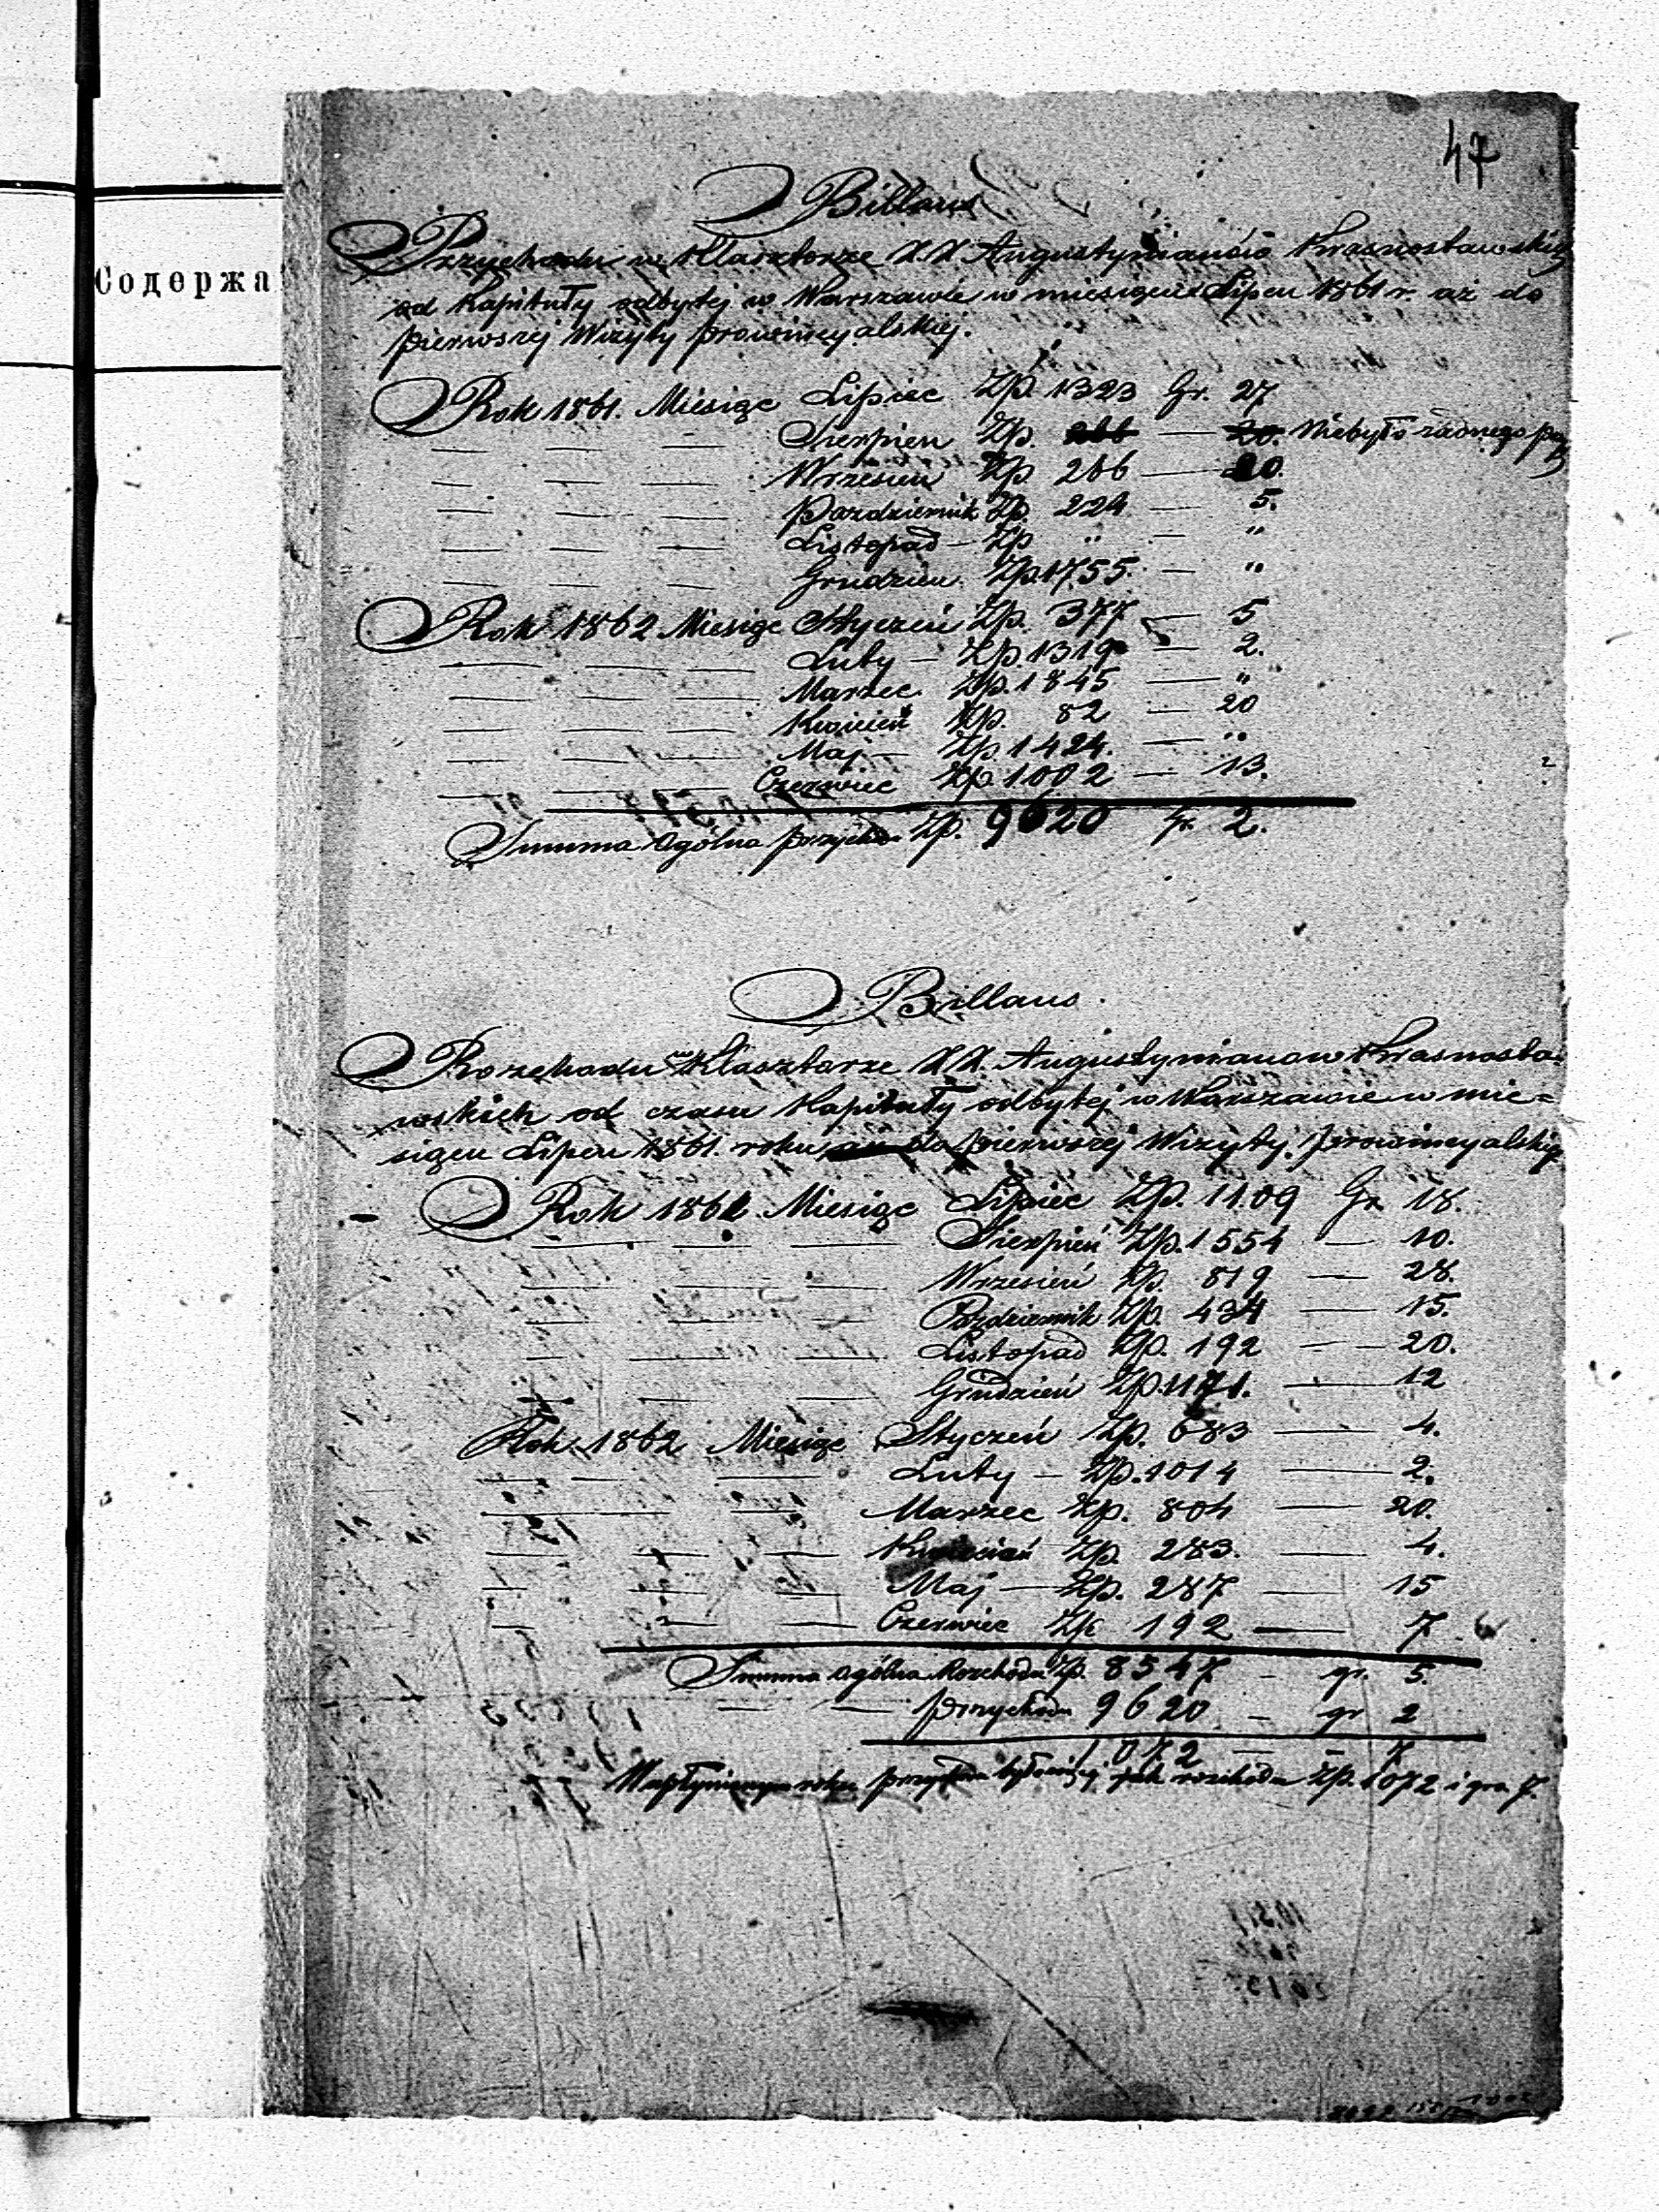 47
Содержа
Billans
Przychodu w Klasztorze X.X Augustynianów Krasnostawskich
od Kapituły odbytej w Warszawie w miesiącu Lipcu 1861 r. aż do
pierwszej Wizyty prowincyalskiej.
Rok 1861. Miesiąc Lipiec Zp. 1323 Gr. 27
— — — Sierpien Zp. 266 — 20. Niebyło żadnego
— — — Wrzesień Zp. 266 — 20.
— — — Pazdziernik Zp. 224 — 5.
— — — Listopad — Zp " — "
— — — Grudzien Zp. 1755. — "
Rok 1862 Miesiąc Styczeń Zp. 377 — 5
— — — Luty — Zp. 1319 — 2.
— — — Marzec. Zp. 1845 — "
— — — Kwiecień Zp. 82 — 20
— — — Maj — Zp 1424. — "
— — — Czerwiec Zp. 1002 — 13.
Summa ogólna przychodu Zp. 9620 Gr. 2.
Billans.
Rozchodu w Klasztorze X.X. Augustynianow Krasnosta-
wskich od czasu Kapituły odbytej w Warszawie w mie=
siącu Lipcu 1861. roku, aż do pierwszej Wizyty. prowincyalskiej
Rok 1861 Miesiąc Lipiec Zp. 1109 Gr 18.
— — — Sierpień Zp. 1554 — 10.
— — — Wrzesień Zp. 819 — 28.
— — — Pazdziernik Zp. 434 — 15.
— — — Listopad Zp. 192 — 20.
— — — Grudzień Zp. 1171. — 12
Rok 1862 Miesiąc Styczeń Zp. 683 — 4.
— — — Luty — Zp. 1014 — 2.
— — Marzec Zp. 804 — 20.
— — — Kwiecień Zp. 283. — 4.
— — — Maj — Zp. 287 — 15
— — — Czerwiec Zp 192 — 7
Summa ogólna Rozchodu Zp. 8547 — gr. 5.
— — przychodu 9620 — gr 2
1072 — — 7
W upłynionym roku przychodu było więcej jak rozchodu Zp. 1072 i gro 7.